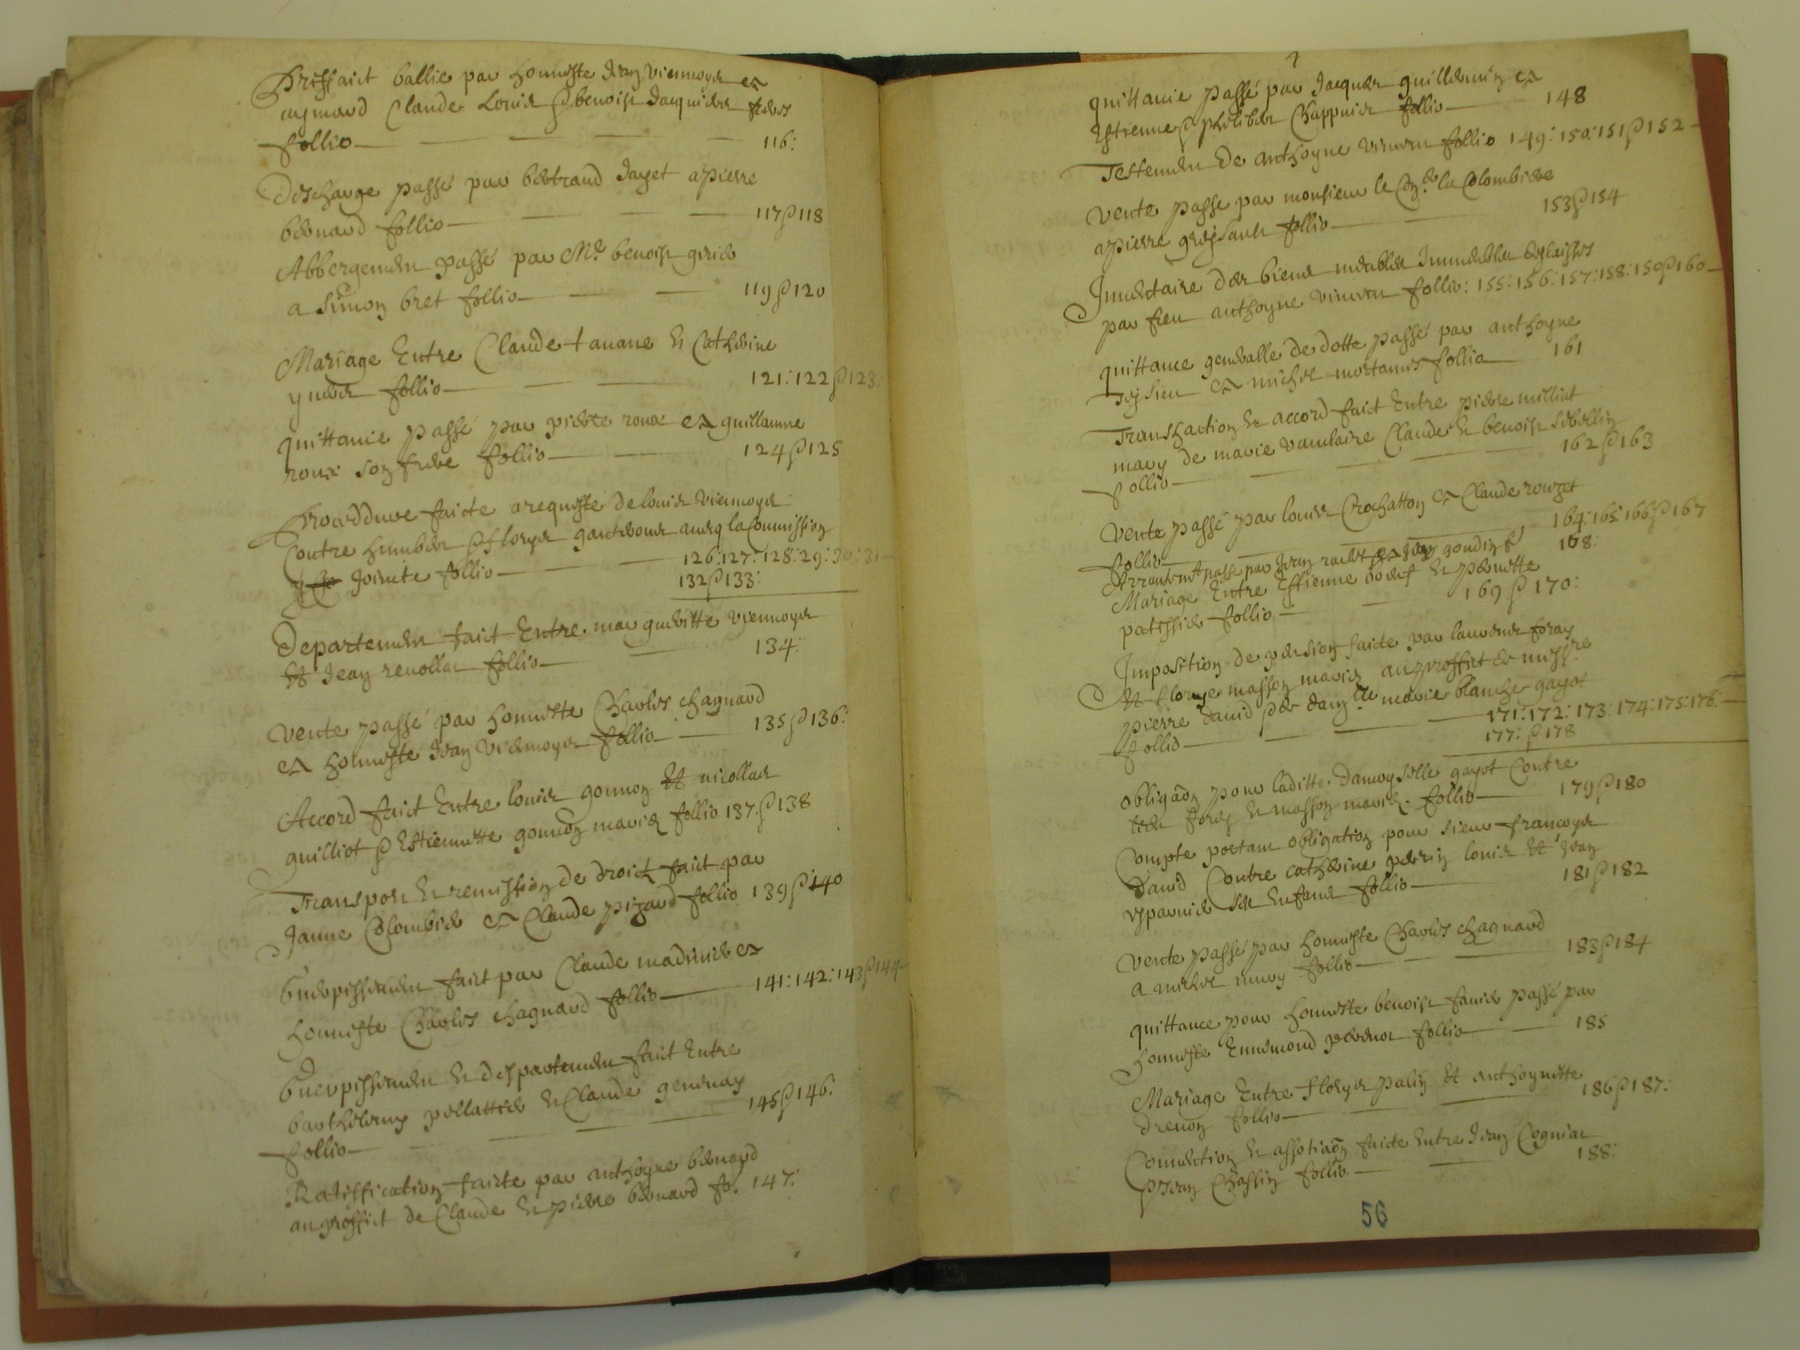 Prisfaict ballie par honneste Jean Viennoys et
aymard Claude Louis & benoist Jacquier freres
follio 116:
Descharge passé par bertrand Jayet a pierre
bernard follio 117 & 118
Abbergement passé par Me. benoist girié
a Simon bret follio 119 & 120
Mariage Entre Claude tanane & Catherine
follio 121: 122 & 123:
quittance passé par pierre roux et guillaume
roux son frere follio 124 & 125
faicte a requeste de louis Viennoys
Contre humber & floris gauteron avecq la Commission
y Jointe follio 126: 127: 128: 29: 30: 31
132 & 133:
Departement faict Entre margueritte Viennoys
et Jean renollat follio 134:
Vente passé par honneste Charles Chagnard
et honneste Jean Viennoys follio 135 & 136:
Accord faict Entre louis gonnon et nicollas
guilliot & Estiennette gonnon mariez follio 137 & 138
Transport & remission de droict faict par
Janne Colombier et Claude pizard follio 139 & 140
Guerpissement faict par Claude madinier et
honneste Charles Chagnard follio 141: 142: 143 & 144
Guerpissement & despartement faict Entre
barthelemy pellattier & Claude genevay
follio 145 & 146:
Ratiffication faicte par anthoyne bernard
au proffict de Claude & pierre bernard fo. 147:
quittance passé par Jacques guillermin et
Estienne & philiber Chappuis follio 148
Testement de anthoyne vincent follio 149: 150: 151 & 152
Vente passe par monsieur le la Colombiere
a pierre greysault follio 153 & 154
Inventaire des biens meubles Immeubles delaisses
par feu anthoyne vincent follio: 155: 156: 157: 158: 159 & 160
quittance generalle de dotte passé par anthoyne
teysieu et michel mortamet follio 161
Transaction & accord faict Entre pierre milliat
mary de marie vaculaire Claude & benoist Sibellin
follio 162 & 163
Vente passé par louis Crochatton et Claude rouzet
follio 164: 165: 166: & 167
passé par Jean et Jean gondin 168:
Mariage Entre Estienne & pernette
patissier follio 169 & 170:
Imposition de pension faicte par laurence foray
et floris masson mariez au proffict de messire
pierre david & de damlle marie blanche gayot
follio 171: 172: 173: 174: 175: 176:
177: & 178
obligaon pour laditte damoyselle gayot Contre
lesd. foray & masson mariez follio 179 & 180
Compte portant obligation pour sieur francoys
david Contre Catherine perrin louis et Jean
ses Enfans follio 181 & 182
Vente passé par honneste Charles Chagnard
a michel follio 183 & 184
quittance pour honneste benoist favier passé par
honneste Ennemond follio 185
Mariage Entre floris palin et anthoynette
drevon follio 186 & 187:
Convention & assotiaon faicte Entre Jean Cogniat
& Jean Chassin follio 188:
56